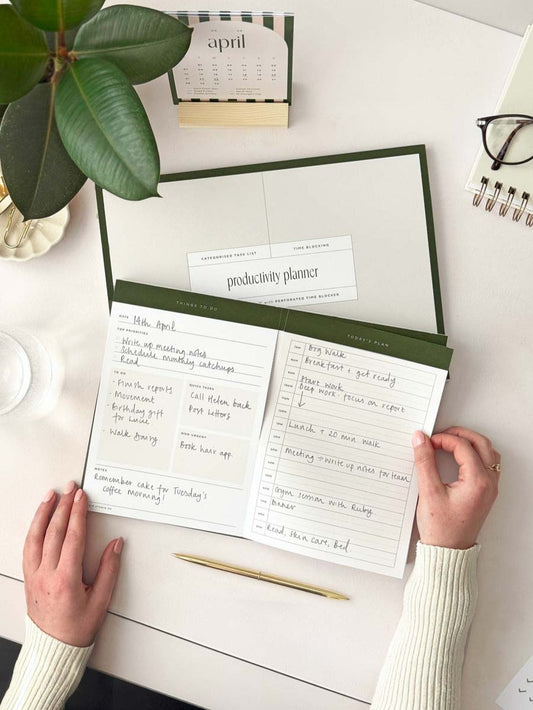 april
CATEGORISED TASK LIST
TIME BLOCKING
productivity planner
PERFORATED TIME BLOCKER
THINGS TO DO
DATE 14th April
TOP PRIORITIES
Write up meeting notes
Schedule monthly catchups
Read
TO DO
- Finish reports
- Movement
- Birthday gift
for Lucie
- Walk Daisy
QUICK TASKS
Call Helen back
Post letters
NON URGENT
Book hair app.
NOTES
Remember cake for Tuesday's
coffee morning!
TODAY'S PLAN
Dog Walk
Breakfast + get ready
Start Work
Deep work - focus on report
Lunch + 20 min walk
Meeting → Write up notes for team
Gym session with Ruby
Dinner
Read, skin care, Bed